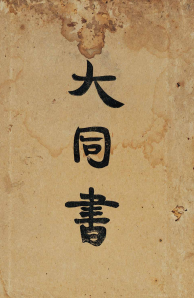 大同書